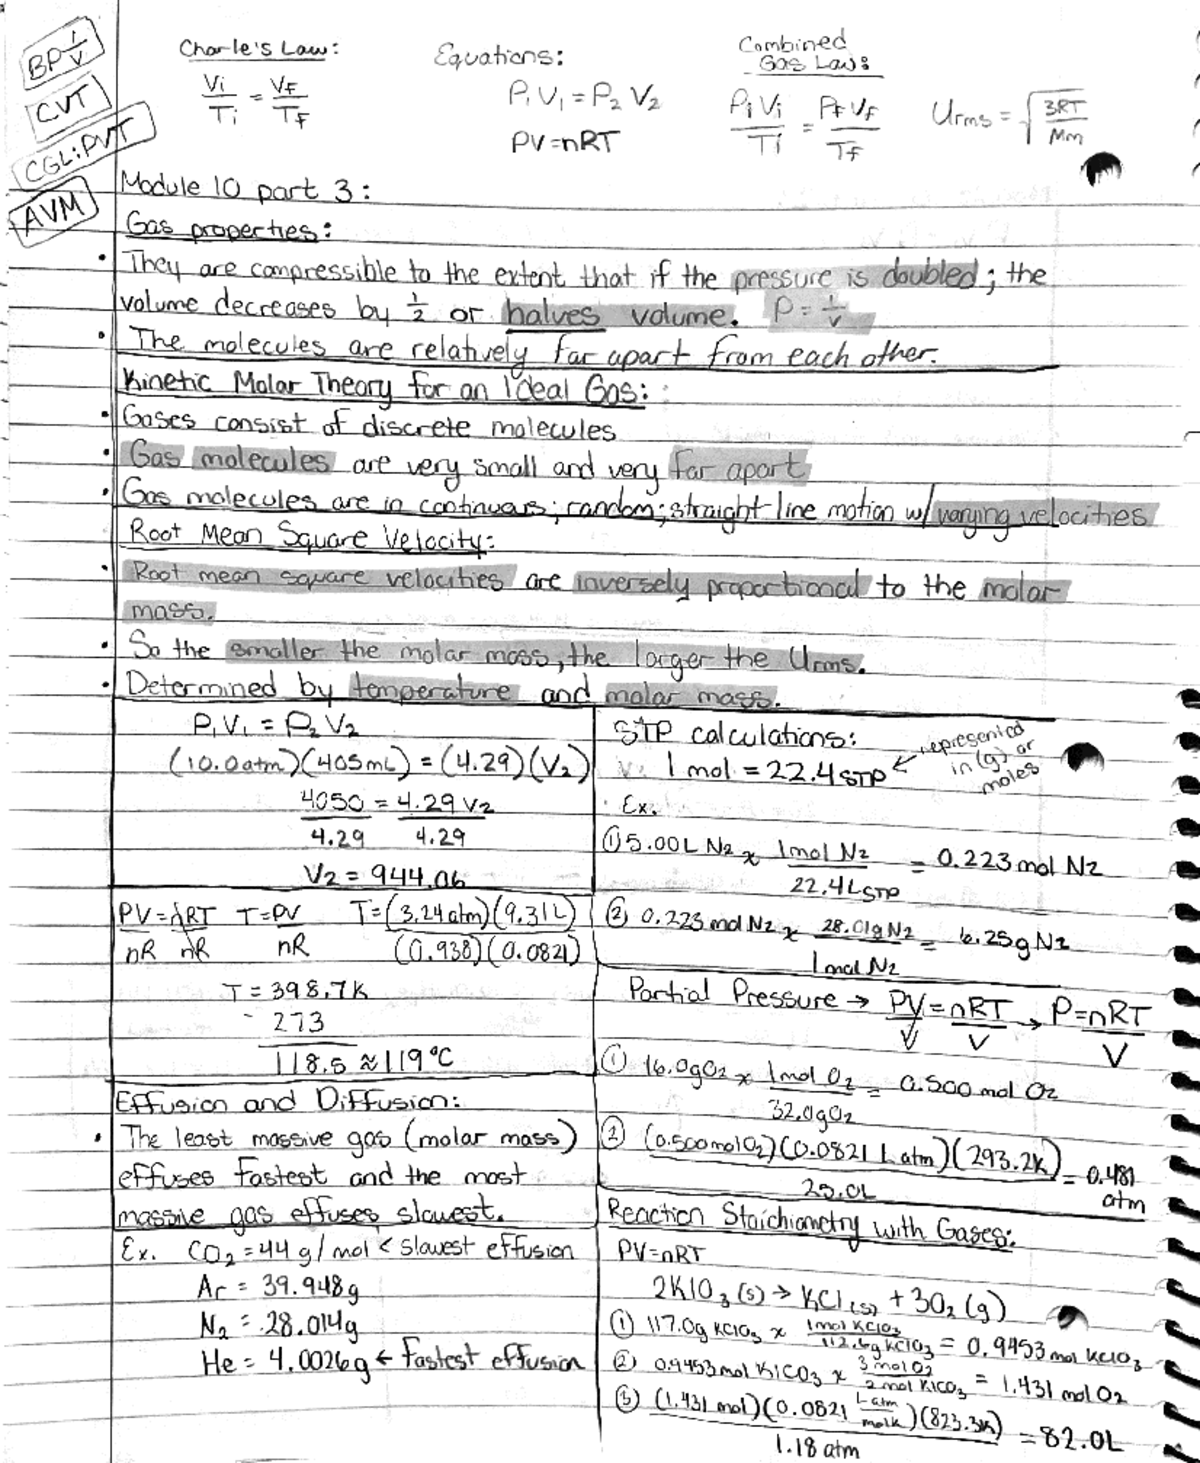 BP 1/V
CVT
CGL:PVT
AVM
Charle's Law:
Vi/Ti = VF/TF
Equations:
P₁V₁ = P₂V₂
PV=nRT
Combined
Gas Law:
PiVi/Ti = PFVF/TF
Urms = √3RT/Mm
Module 10 part 3:
Gas properties:
• They are compressible to the extent that if the pressure is doubled; the
volume decreases by 1/2 or halves volume. P = 1/V
• The molecules are relatively far apart from each other.
Kinetic Molar Theory for an Ideal Gas:
• Gases consist of discrete molecules
• Gas molecules are very small and very far apart
• Gas molecules are in continuous; random; straight-line motion w/ varying velocities
Root Mean Square Velocity:
• Root mean square velocities are inversely proportional to the molar
mass.
• So the smaller the molar mass, the larger the Urms.
• Determined by temperature and molar mass.
P₁V₁ = P₂V₂
(10.0atm)(405mL) = (4.29)(V₂)
4050/4.29 = 4.29V₂/4.29
V₂ = 944.06
PV/nR = nRT/nR T=PV/nR T=(3.24atm)(9.31L)/(0.938)(0.0821)
T = 398.7K
- 273
118.5 ≈ 119°C
Effusion and Diffusion:
• The least massive gas (molar mass)
effuses fastest and the most
massive gas effuses slowest.
Ex. CO₂ = 44 g/mol < slowest effusion
Ar = 39.948g
N₂ = 28.014g
He = 4.0026g ← fastest effusion
STP calculations:
1 mol = 22.4STP ← represented
in (g) or
moles
Ex.
① 5.00L N₂ x 1mol N₂/22.4LSTP = 0.223 mol N₂
② 0.223 mol N₂ x 28.01g N₂/1mol N₂ = 6.25g N₂
Partial Pressure → PV/V = nRT/V → P=nRT/V
① 16.0gO₂ x 1mol O₂/32.0gO₂ = 0.500 mol O₂
② (0.500molO₂)(0.0821 Latm)(293.2K)/25.0L = 0.481
atm
Reaction Stoichiometry with Gases:
PV=nRT
2KlO₃(s) → KCl(s) + 3O₂(g)
① 117.0g KClO₃ x 1mol KClO₃/112.6gKClO₃ = 0.9453 mol KClO₃
② 0.9453mol KlCO₃ x 3 mol O₂/2 mol KlCO₃ = 1.431 mol O₂
③ (1.431 mol)(0.0821 L-atm/molK)(823.3K)/1.18 atm = 82.0L